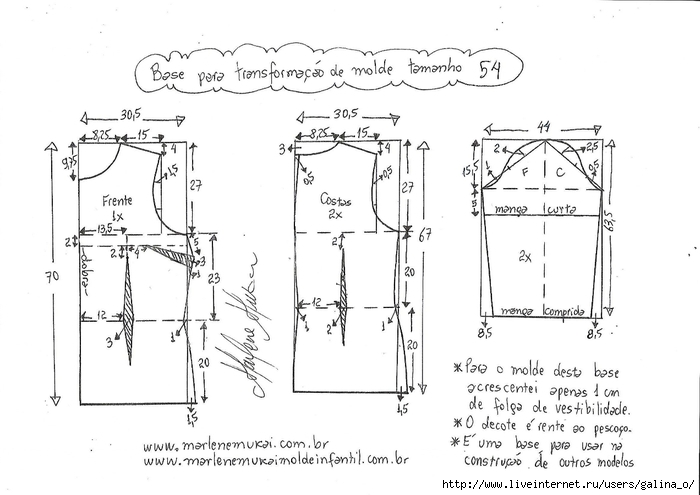 Base para transformação de molde tamanho 54
30,5
8,25 15
4
9,75
1,5
27
Frente
1x
13,5
2
5
2
4
3
1
dobra
70
23
12
3
1
20
1,5
30,5
8,25 15
3
4
0,5
0,5
27
Costas
2x
67
2
20
12
1
1
20
1,5
Marlene Mukai
44
2
2,5
15,5
1
F
C
0,5
5
manga curta
63,5
2x
manga comprida
8,5
8,5
*Para o molde desta base
acrescentei apenas 1 cm
de folga de vestibilidade.
*O decote é rente ao pescoço.
*É uma base para usar na
construção de outros modelos
www.marlenemukai.com.br
www.marlenemukaimoldeinfantil.com.br
http://www.liveinternet.ru/users/galina_o/